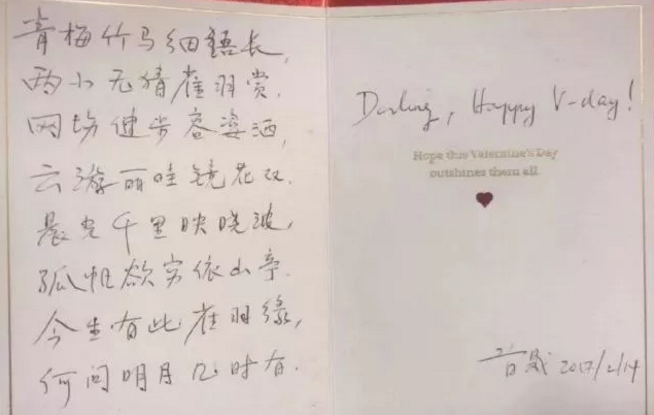 青梅竹马细语长,
两小无猜雀羽赏.
网场健步蓉姿洒,
云游丽哇镜花双.
晨光千里映晓波,
孤帆欲穷依山亭.
今生有此雀羽缘,
何问明月几时有.
Darling, Happy V-day!
Hope this Valentine's Day
outshines them all
2017/2/14